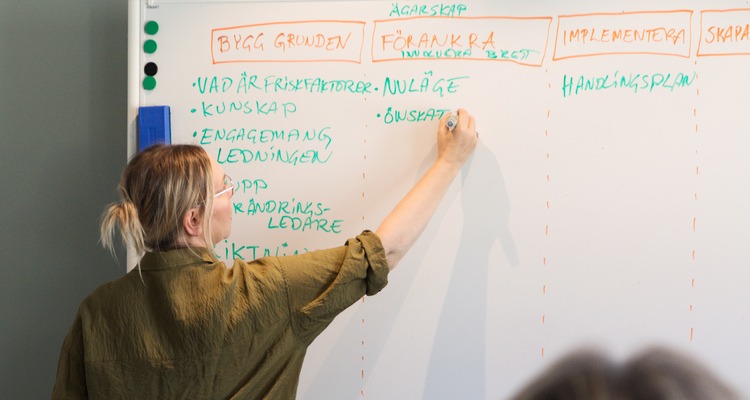 ÄGARSKAP
BYGG GRUNDEN
FÖRANKRA
INVOLVERA BRETT
IMPLEMENTERA
SKAPA
• VAD ÄR FRISKFAKTORER
• KUNSKAP
• ENGAGEMANG
LEDNINGEN
UPP
RÄNDRINGS-
LEDARE
IKTNIN
• NULÄGE
• ÖNSKAT
HANDLINGSPLAN